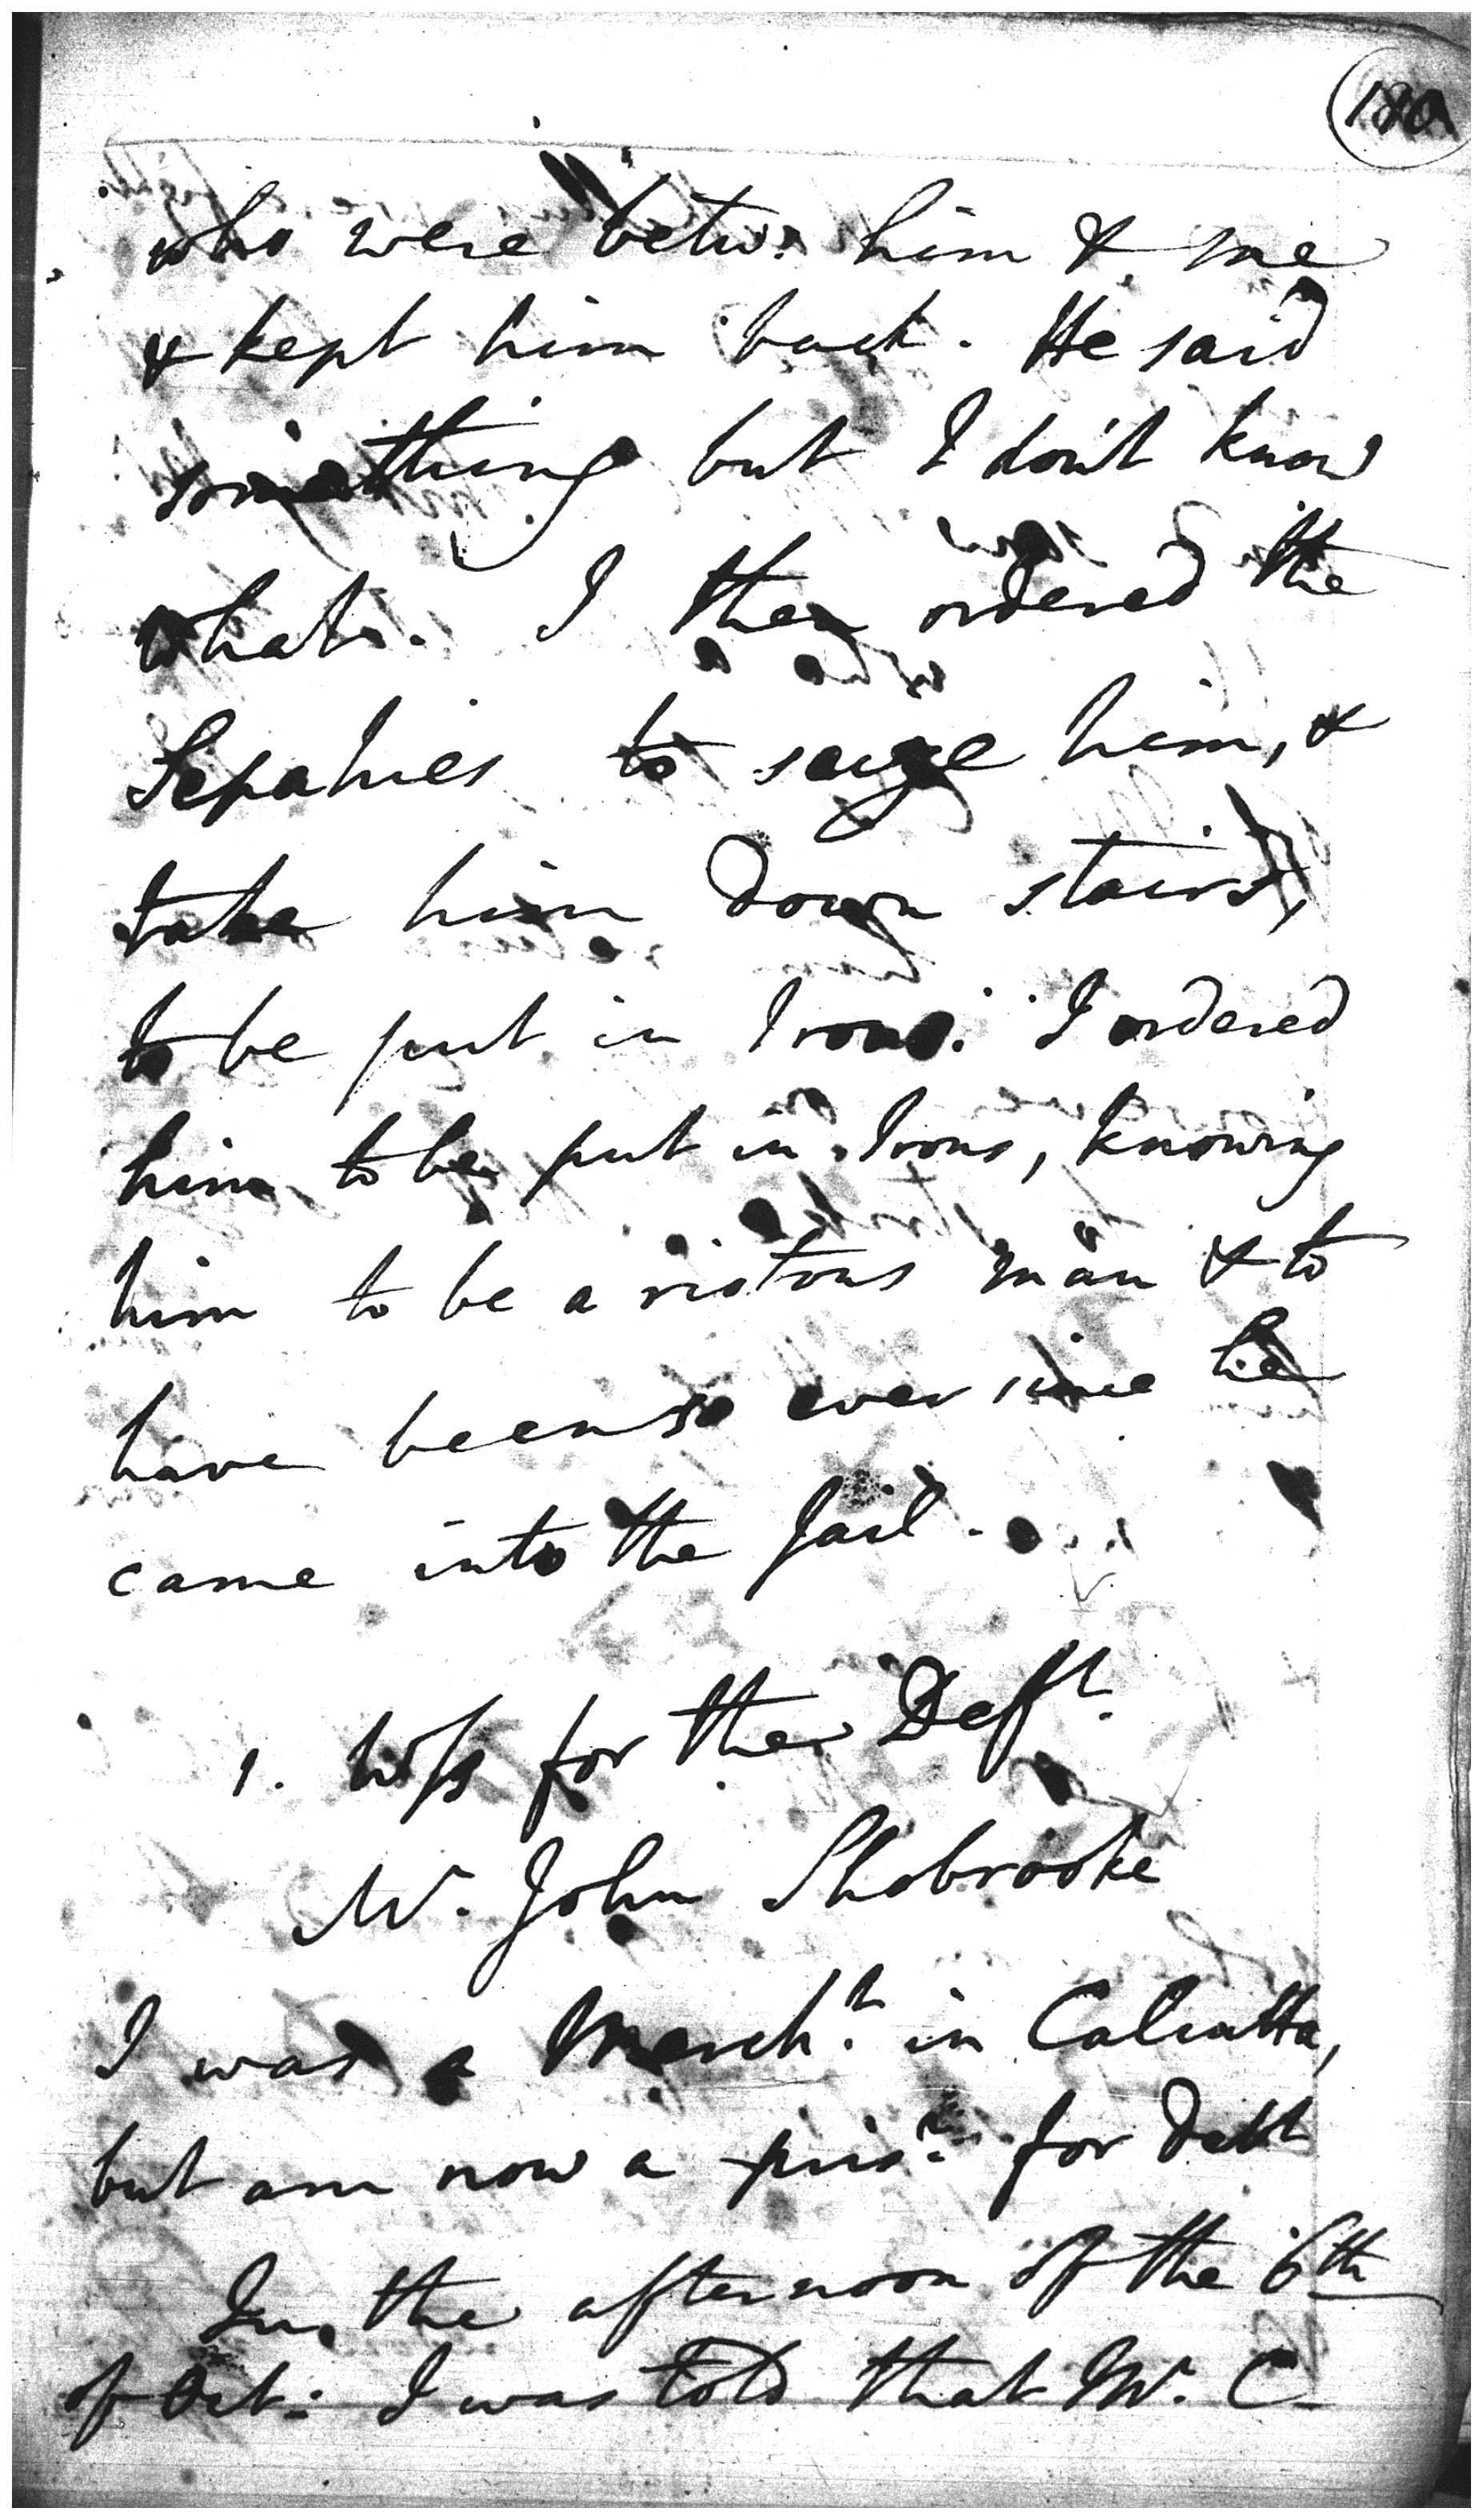 180
who were betw. him & me
& kept him back. He said
something but I don't know
what. I then ordered the
Sepahies to seize him, &
take him down stairs,
to be put in Irons. I ordered
him to be put in Irons, knowing
him to be a riotous man & to
have been so ever since he
came into the Jail.
1. Wss for the Defft.
Mr. John Shobrooke
I was a Mercht. in Calcutta,
but am now a prisr. for debt
In the afternoon of the 6th
of Oct: I was told that Mr. C